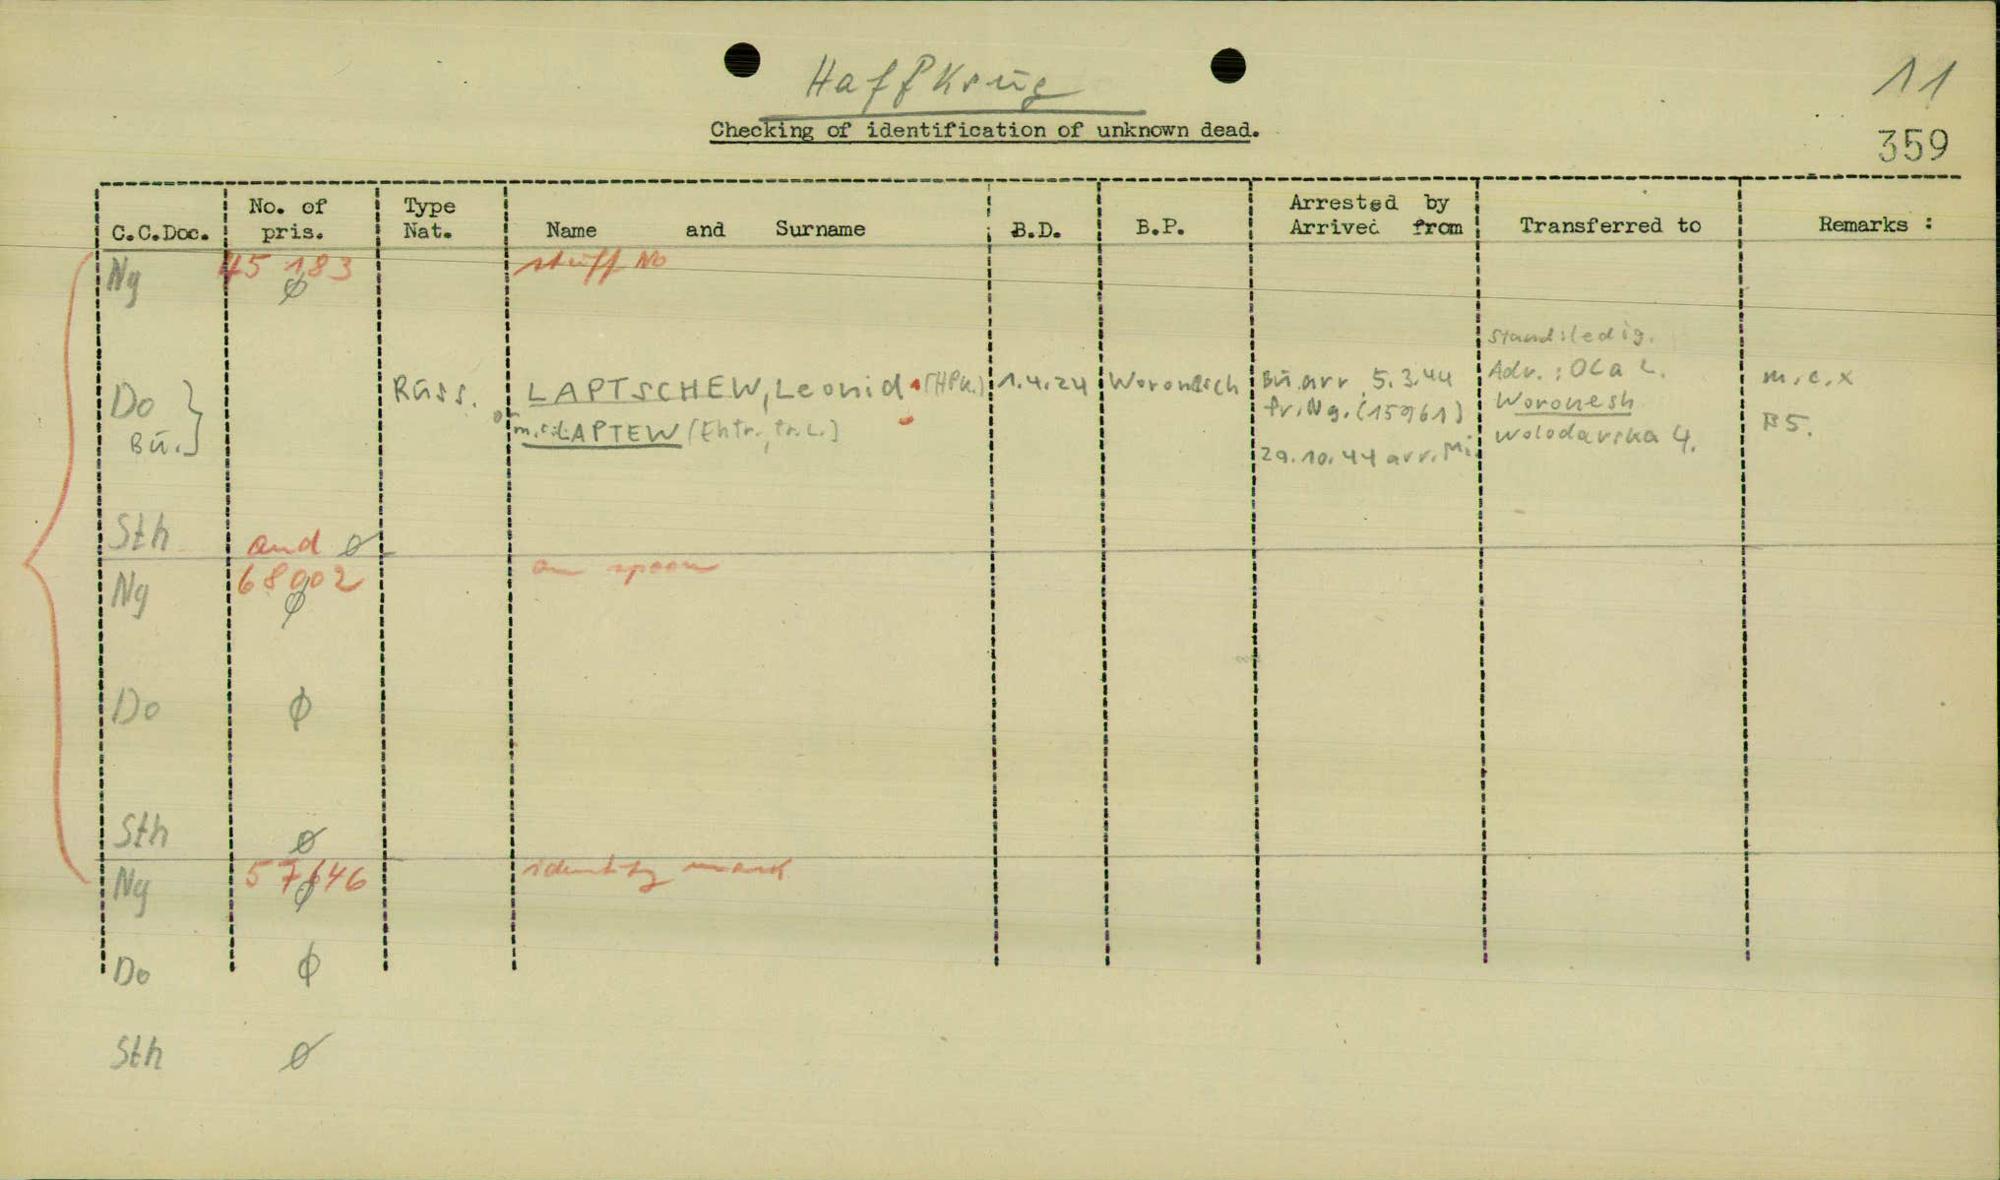 Haffkrüg
11
Checking of identification of unknown dead.
359
C.C.Doc. No. of pris. Type Nat. Name and Surname B.D. B.P. Arrested by Arrived from Transferred to Remarks :
Ng 45 183 stuff No
ø
Stand: ledig.
Do Russ. LAPTSCHEW, Leonid (HPK.) 1.4.24 Woronesch Bu. arr. 5.3.44 Adr.: Ola L. m.c.x
Bu. or m.c.i. LAPTEW (Entr., tr.L.) fr. Ng. (15961) Woronesh B5.
29.10.44 arr. Mi. Wolodarska 4.
Sth and ø
Ng 68002 on spoon
ø
Do ø
Sth ø
Ng 57646 identity mark
ø
Do ø
Sth ø